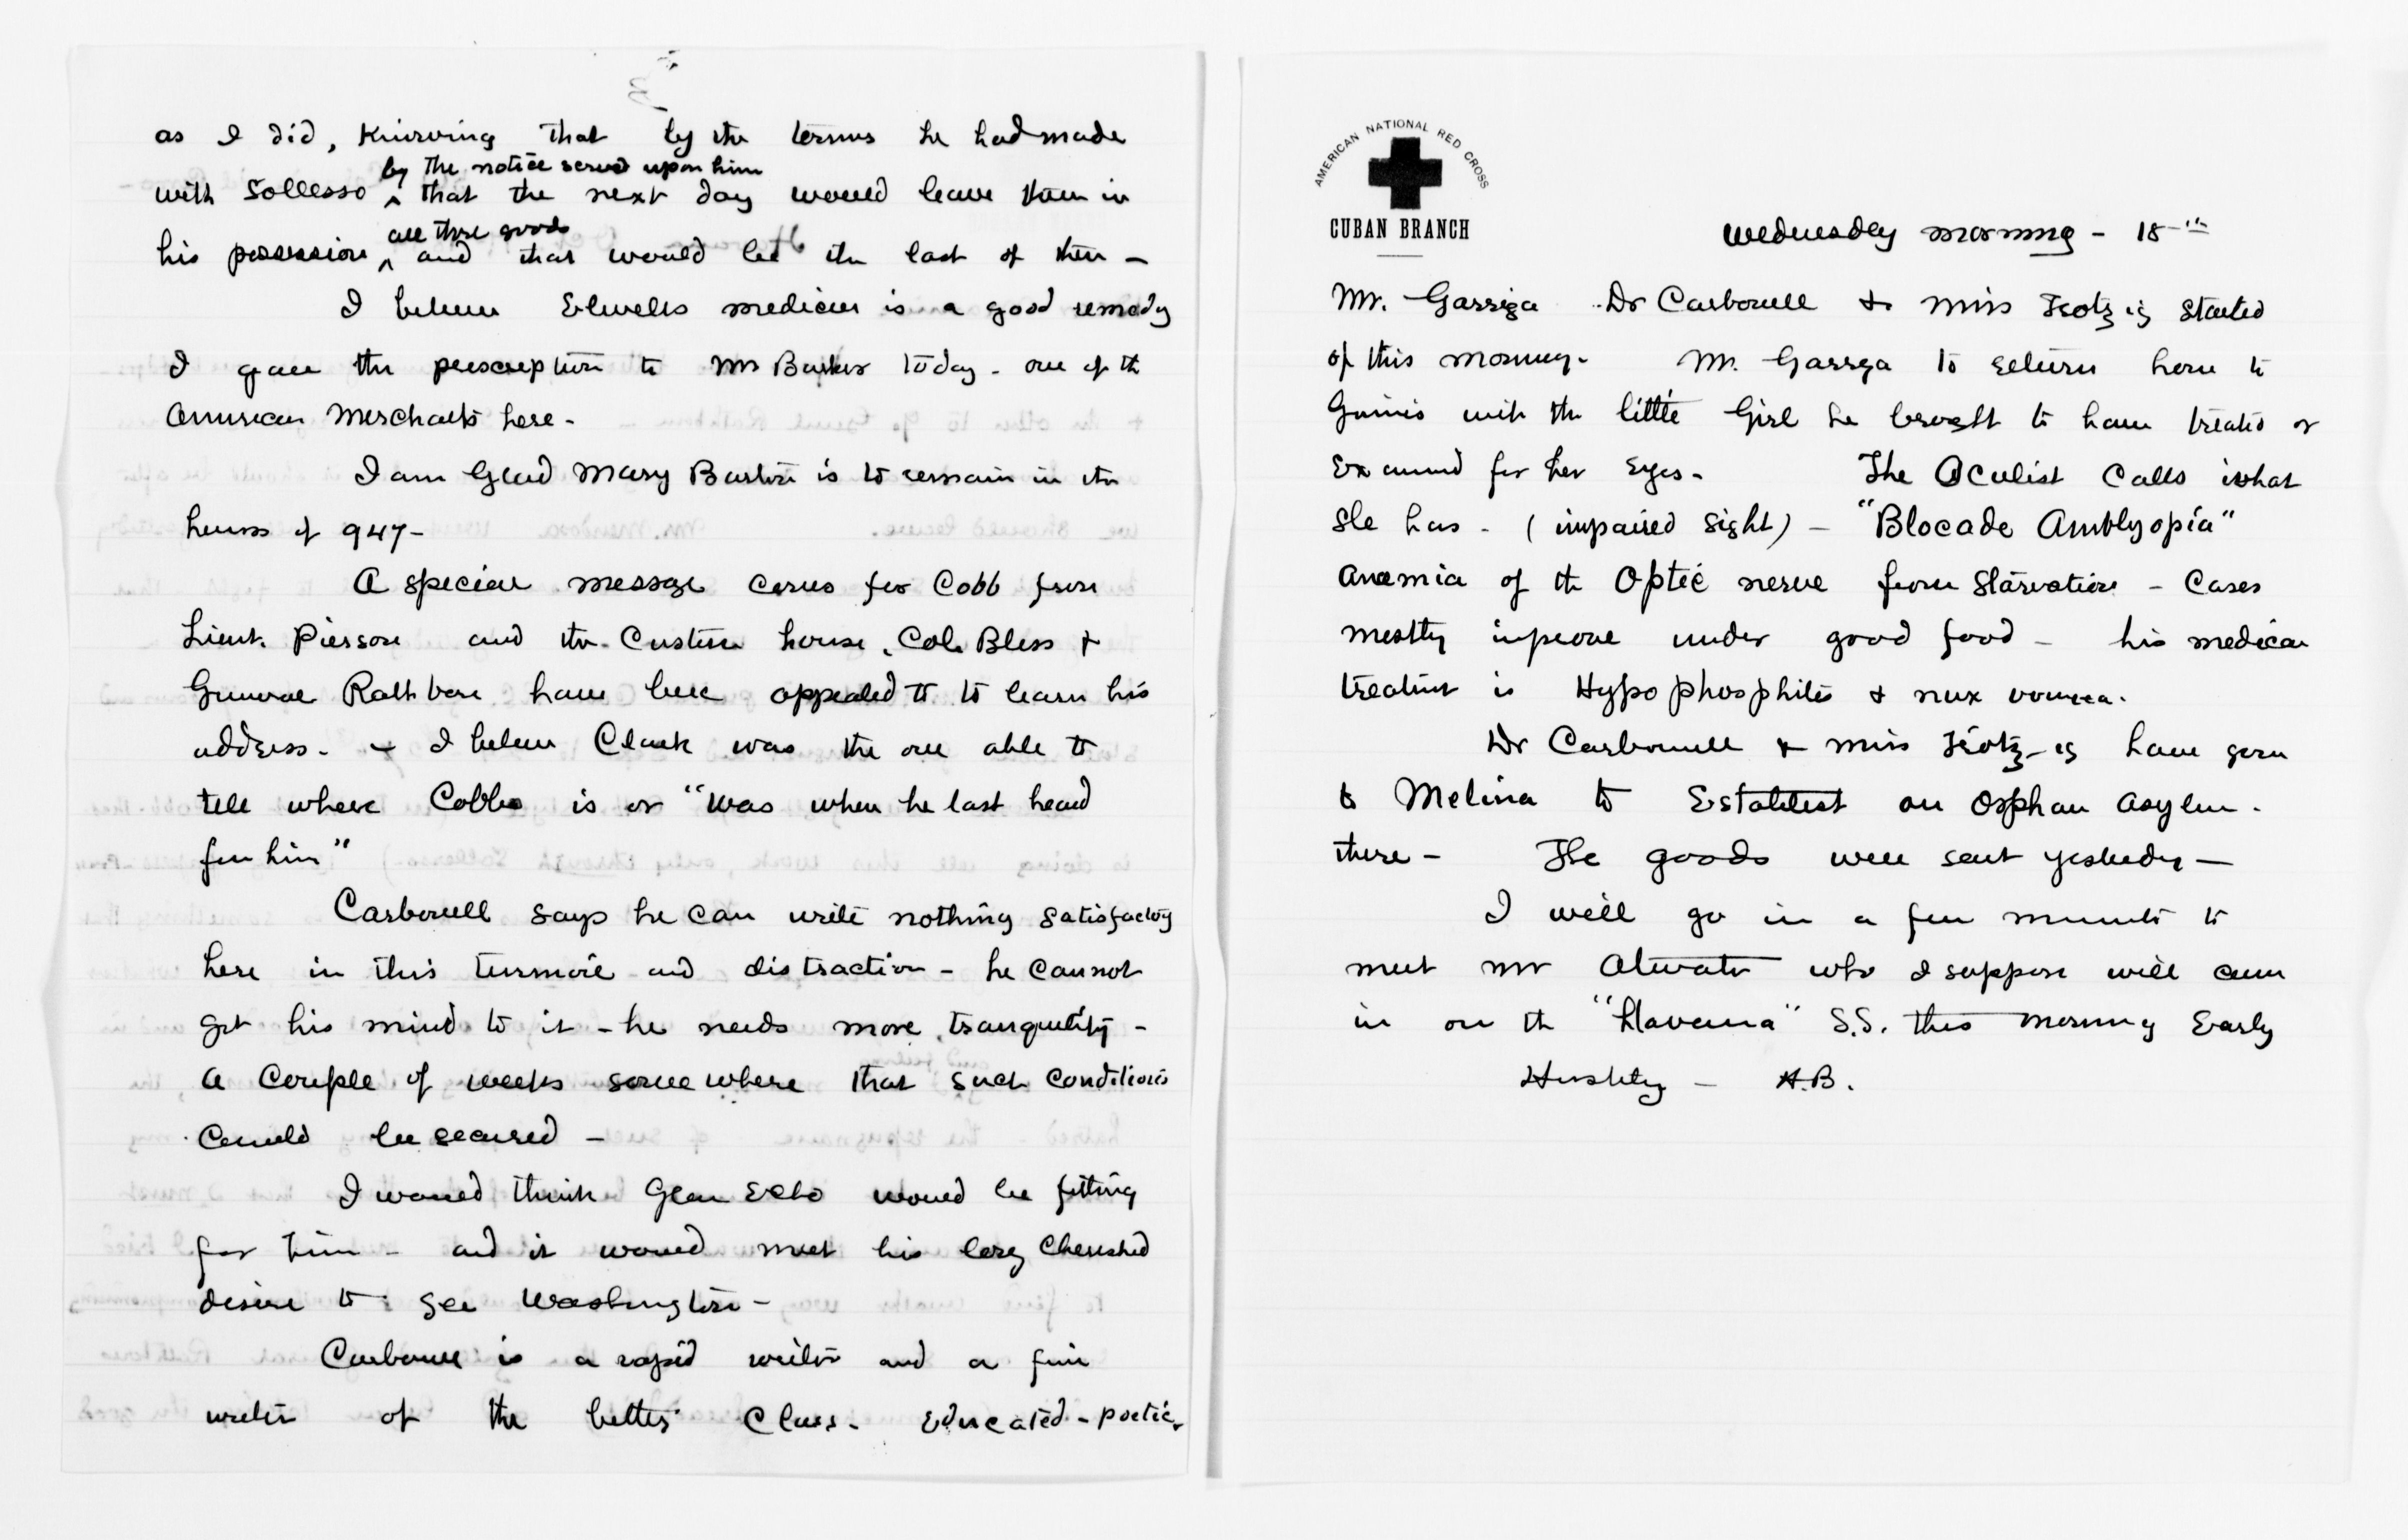 as I did, Knowing that by the terms he had made
by the notice served upon him
with Sollosso ^ that the next day would leave them in
all those goods
his possession ^ and that would be the last of them -
I believe Elwells medicine is a good remedy
I gave the prescription to Mr Barker today - one of the
American Merchants here -
I am Glad Mary Barton is to remain in the
house of 947 -
A special message comes for Cobb from
Lieut. Pierson and the Custom house. Col. Bliss &
General Rathbone have been appealed to to learn his
address. - I believe Clark was the one able to
tell where Cobb is or "was when he last heard
from him"
Carbonell says he can write nothing satisfactory
here in this turmoil and distraction - he cannot
get his mind to it - he needs more tranquility -
a Couple of weeks some where that such conditions
Could be secured -
I would think Glen Echo would be fitting
for him - and it would meet his long Cherished
desire to see Washington -
Carbonell is a rapid writer and a fine
writer of the better Class - Educated - poetic
AMERICAN NATIONAL RED CROSS
CUBAN BRANCH
Wednesday morning - 18th
Mr. Garriga Dr Carbonell & Miss started
of this morning - Mr. Garriga to return home to
Guinis with the little Girl he brought to have treated or
Examined for her Eyes - The Oculist Calls what
she has - (impaired sight) - "Blocade Amblyopia"
Anaemia of the Optic nerve from Starvation - Cases
mostly improve under good food - his medical
treatment is Hypophosphites & nux vomica.
Dr Carbonell & Miss have gone
to Melina to Establish an Orphan Asylum -
there - The goods were sent yesterday -
I will go in a few minutes to
meet Mr Atwater who I suppose will come
in on the "Havana" S.S. this morning Early
Hastily -